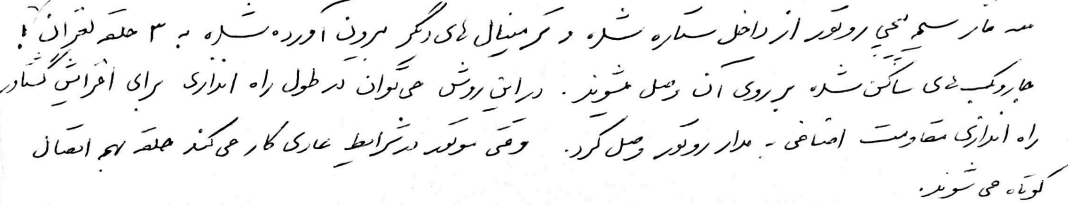 سه فاز سیم پیچی روتور از داخل ستاره شده و ترمینال های دیگر بیرون آورده شده به ۳ حلقه لغزان با
جاروبک های ساکن شده بر روی آن وصل میشوند. در این روش می توان در طول راه اندازی برای افزایش گشتاور
راه اندازی مقاومت اضافی به مدار روتور وصل کرد. وقتی موتور در شرایط عادی کار می کند حلقه بهم اتصال
کوتاه می شوند.